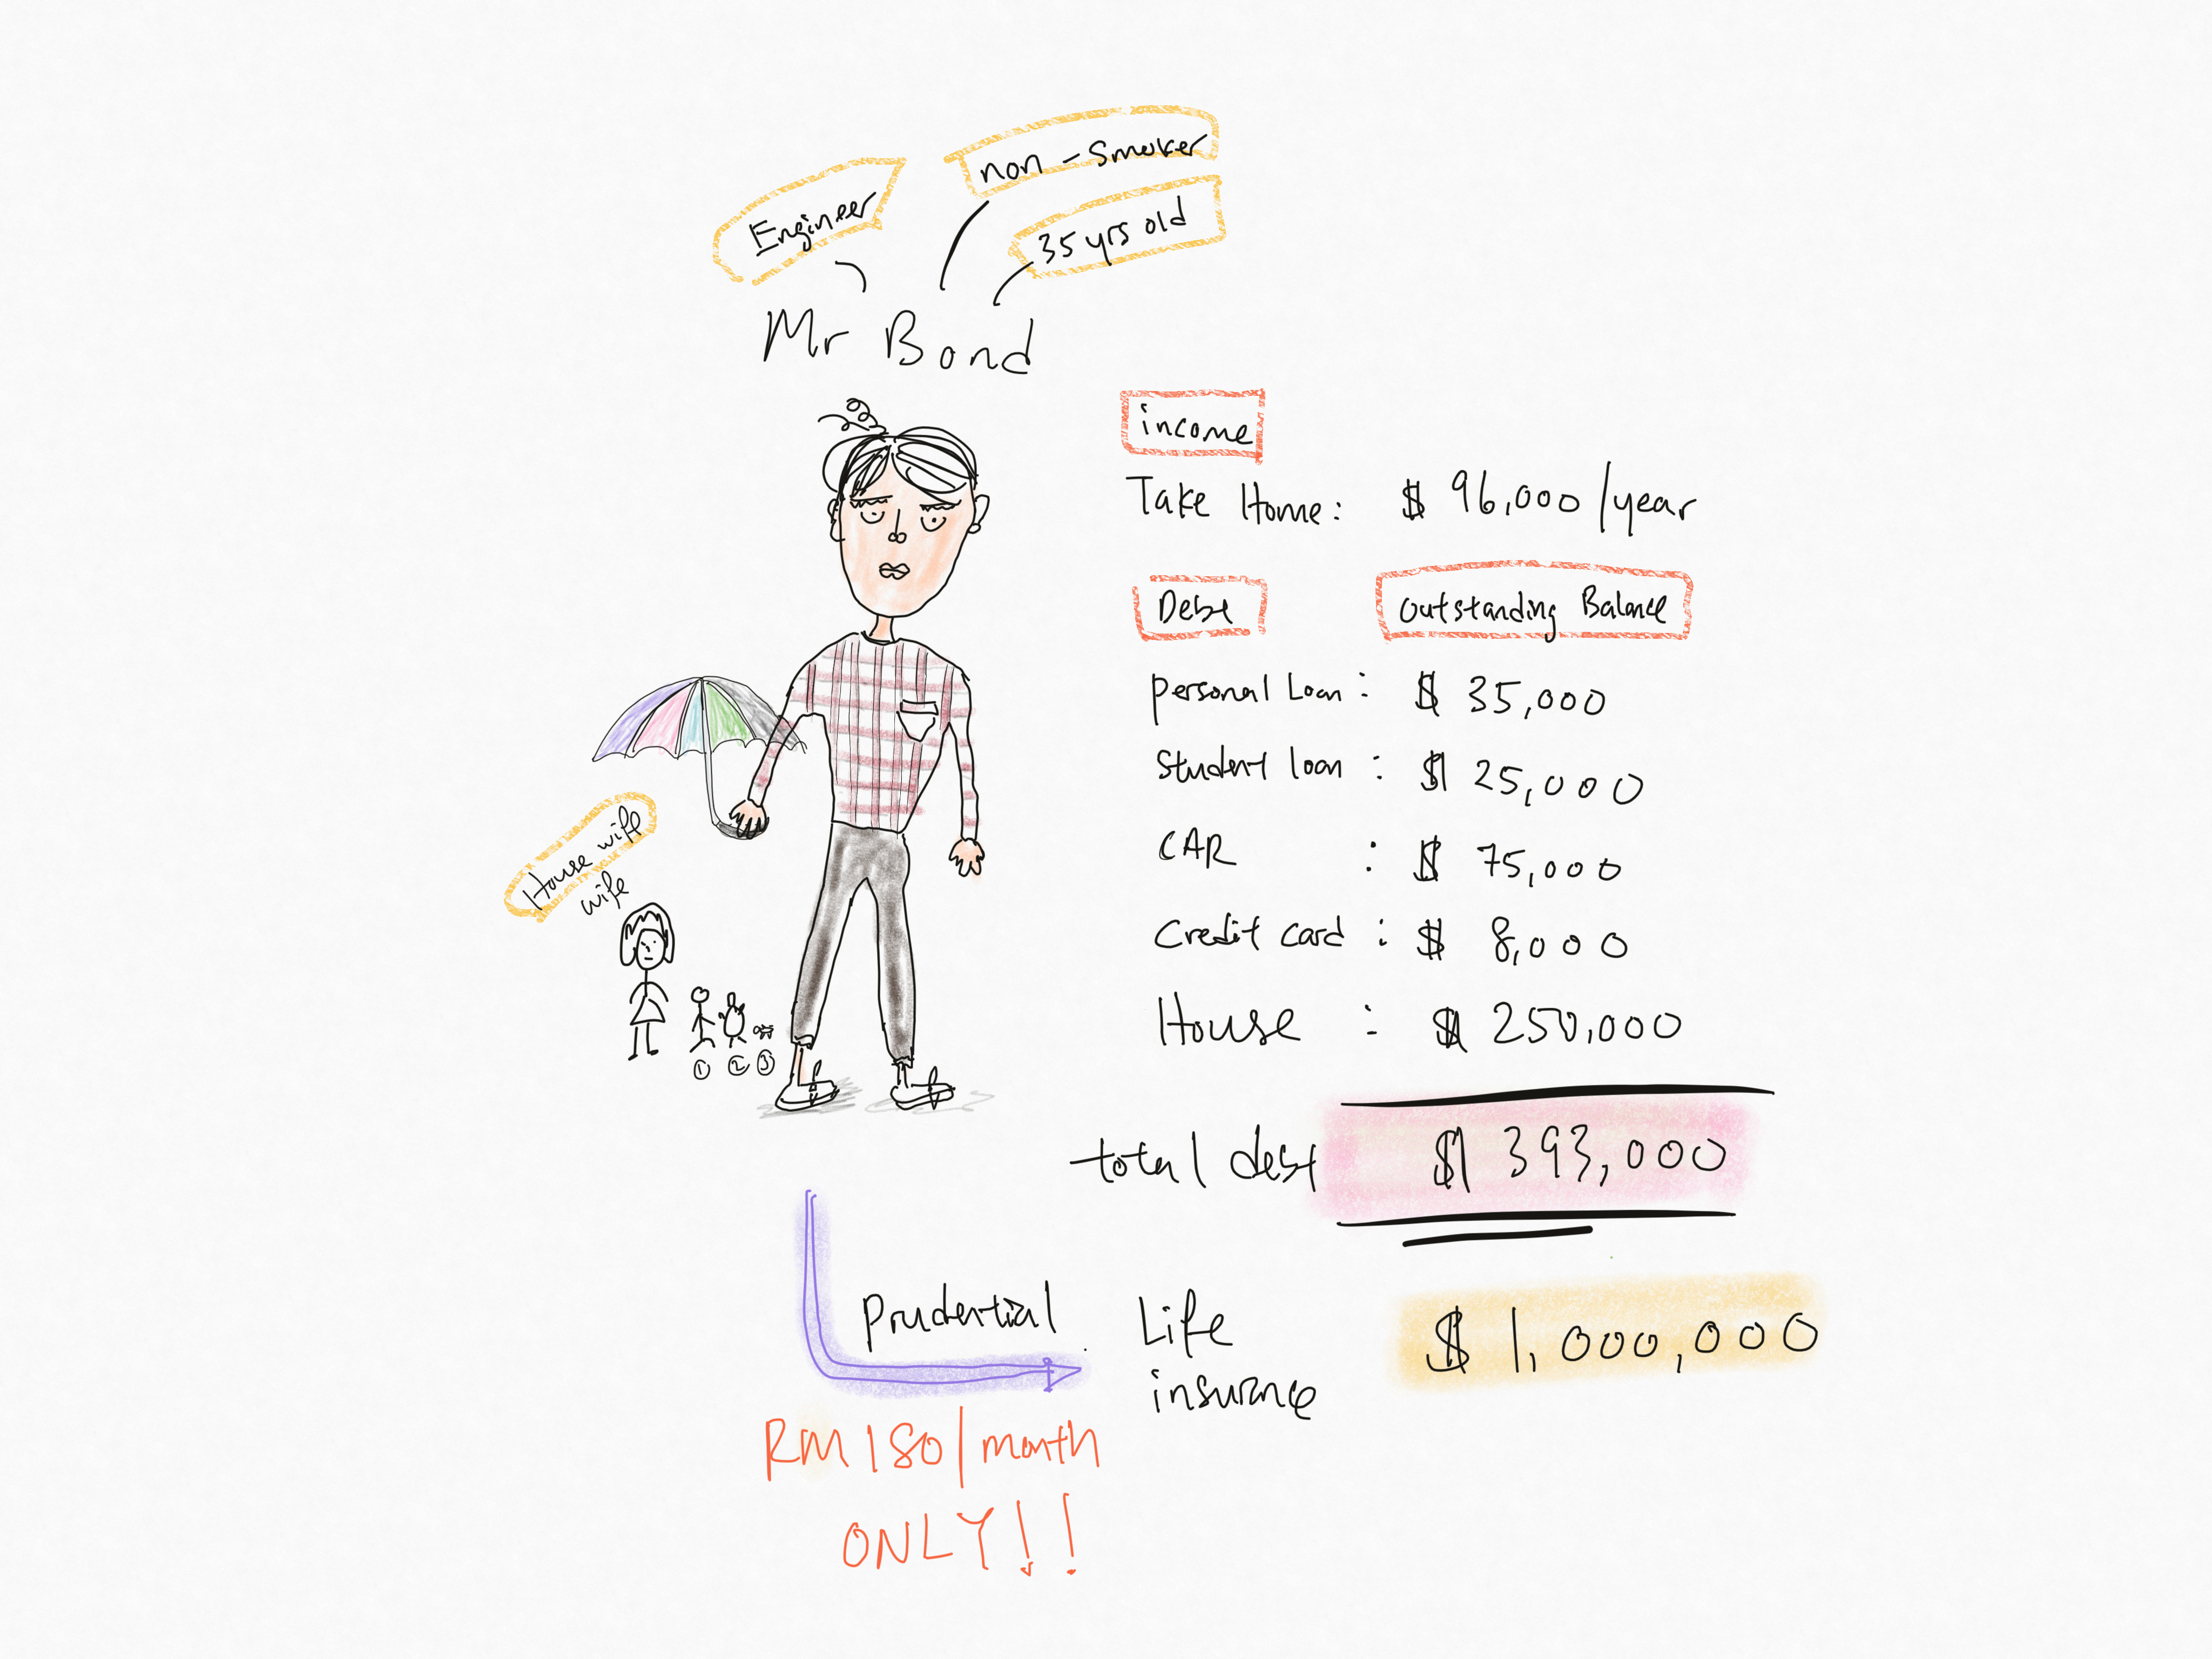 non-smoker
Engineer
35 yrs old
Mr Bond
income
Take Home: $ 96,000/year
Debt Outstanding Balance
personal Loan: $ 35,000
Student loan: $ 25,000
CAR : $ 75,000
Credit card: $ 8,000
House : $ 250,000
total debt $ 393,000
House wife
wife
① ② ③
Prudential Life insurance $ 1,000,000
RM180/month
ONLY!!